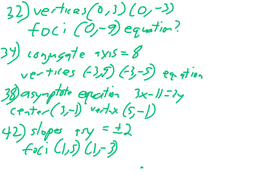 32) vertices (0,3) (0,-3)
foci (0,-9) equation?
34) conjugate axis = 8
vertices (-3,9) (-3,-5) equation
38) asymptote equation 3x-11=2y
center (3,-1) vertex (5,-1)
42) slopes = ±2
foci (1,5) (1,-3)